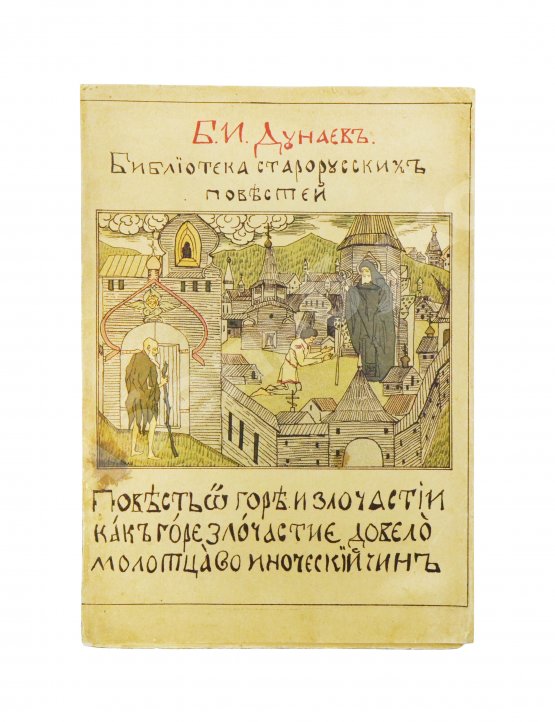 Б. И. Дунаевъ.
Библіотека старорусскихъ
повѣстей
Повѣсть ѿ горѣ и злочастіи
ка́къ го́ре зло́частие довело̀
молотца̀ во иноческїй чинъ